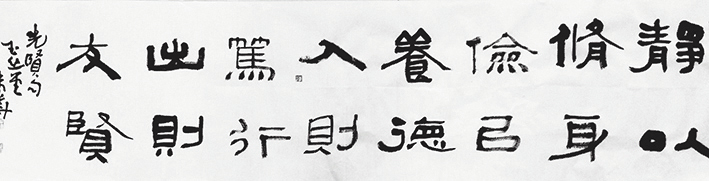 靜以
脩身
儉㠯
養德
入則
篤行
出則
友賢
先賢句